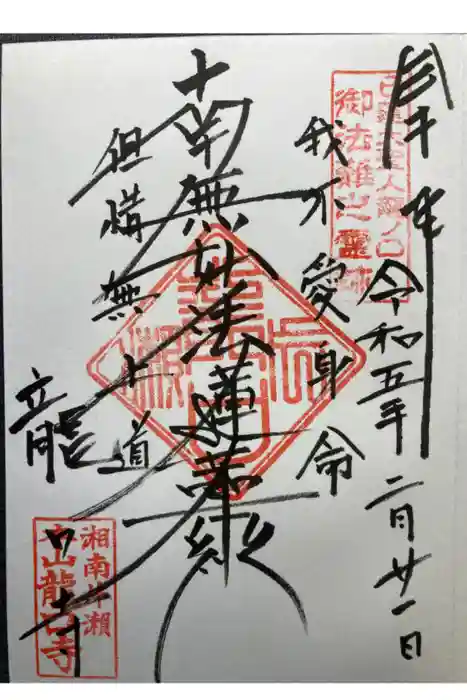 日蓮大聖人龍ノ口
御法難之靈跡
令和五年二月廿一日
我不愛身命
南無妙法蓮華経
但惜無上道
龍口寺
湘南片瀬
寂光山龍口寺